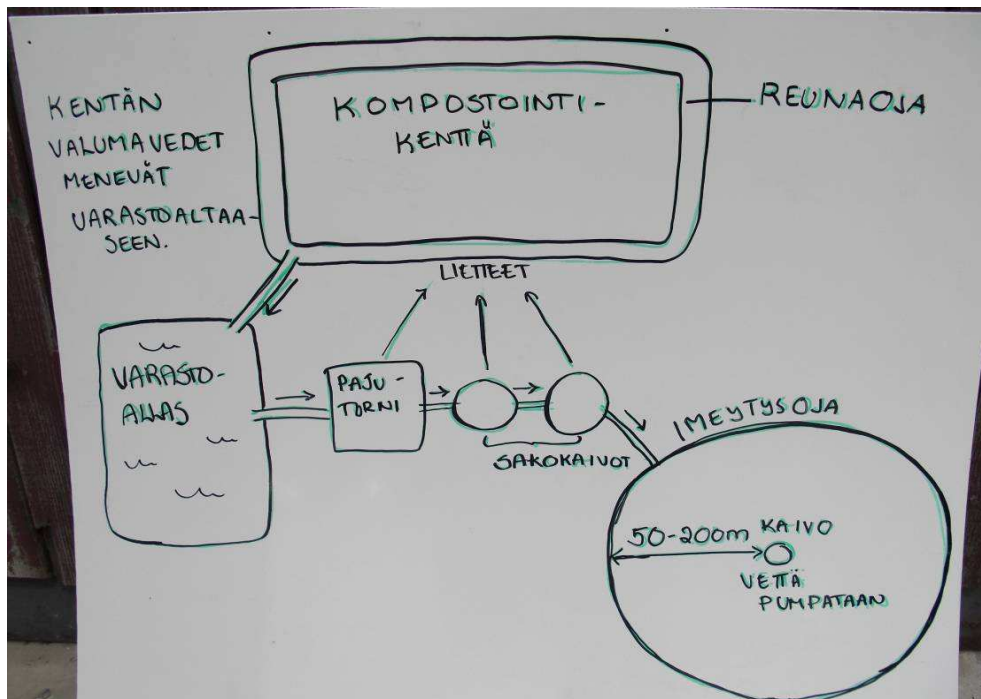 KENTÄN
VALUMAVEDET
MENEVÄT
VARASTOALTAA-
SEEN.
KOMPOSTOINTI-
KENTTÄ
REUNAOJA
LIETTEET
VARASTO-
ALLAS
PAJU-
TORNI
SAKOKAIVOT
IMEYTYSOJA
50-200m KAIVO
VETTÄ
PUMPATAAN